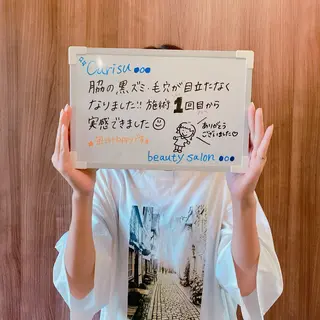 Curisu
脇の黒ズミ・毛穴が目立たなく
なりました!! 施術1回目から
実感できました
ありがとう
ございました♡
beauty salon